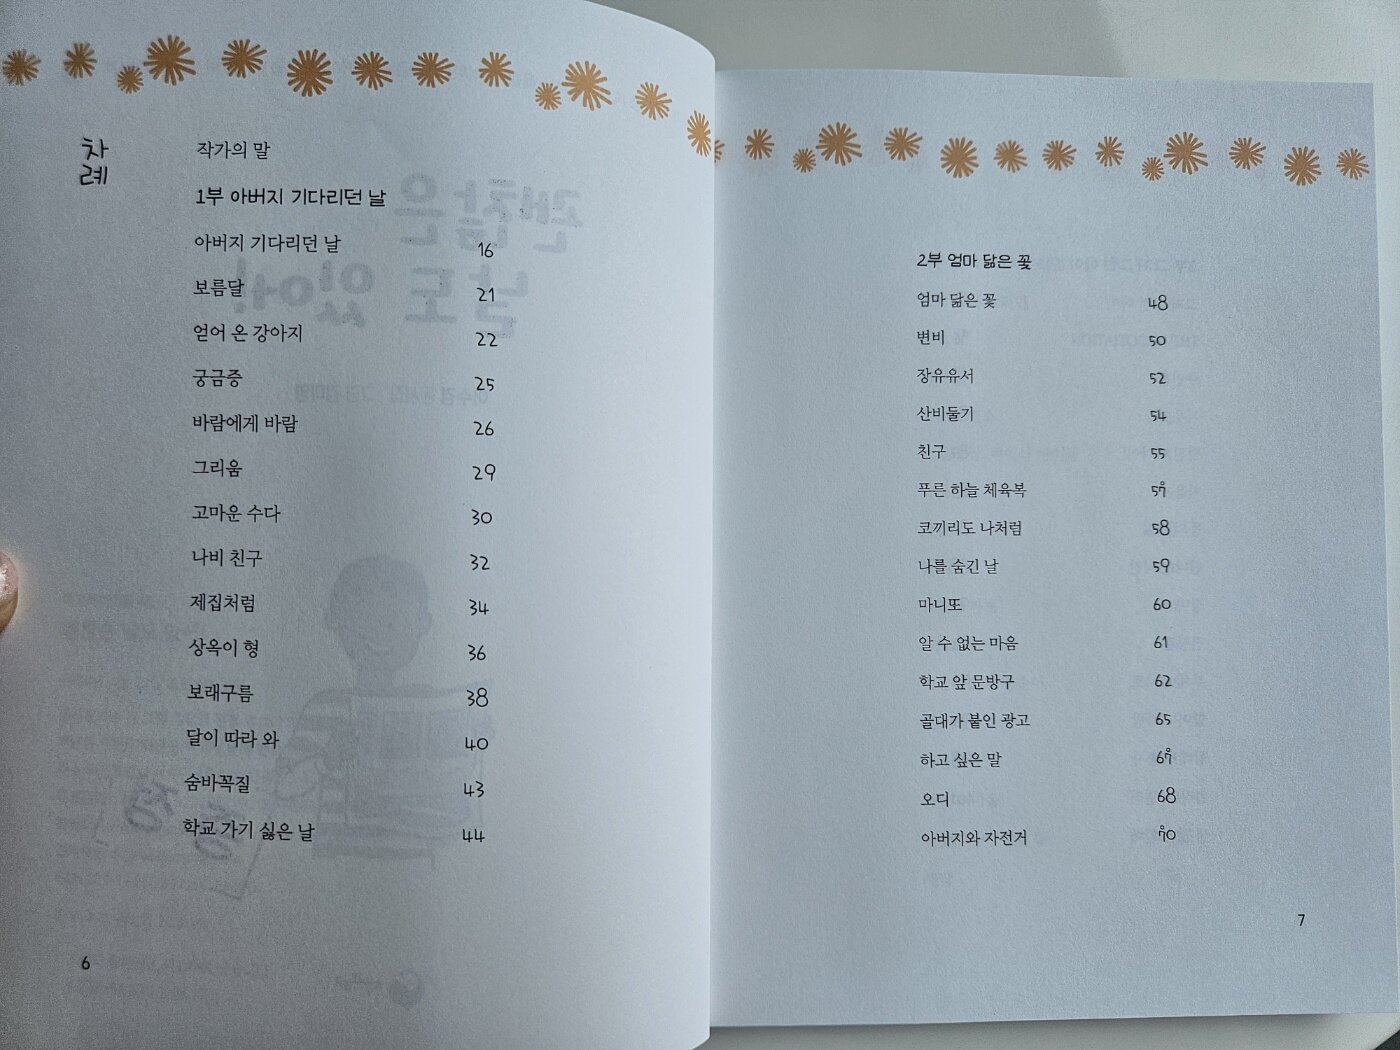 차례
작가의 말
1부 아버지 기다리던 날
아버지 기다리던 날 16
보름달 21
얻어 온 강아지 22
궁금증 25
바람에게 바람 26
그리움 29
고마운 수다 30
나비 친구 32
제집처럼 34
상옥이 형 36
보래구름 38
달이 따라 와 40
숨바꼭질 43
학교 가기 싫은 날 44
6
2부 엄마 닮은 꽃
엄마 닮은 꽃 48
변비 50
장유유서 52
산비둘기 54
친구 55
푸른 하늘 체육복 57
코끼리도 나처럼 58
나를 숨긴 날 59
마니또 60
알 수 없는 마음 61
학교 앞 문방구 62
골대가 붙인 광고 65
하고 싶은 말 67
오디 68
아버지와 자전거 70
7